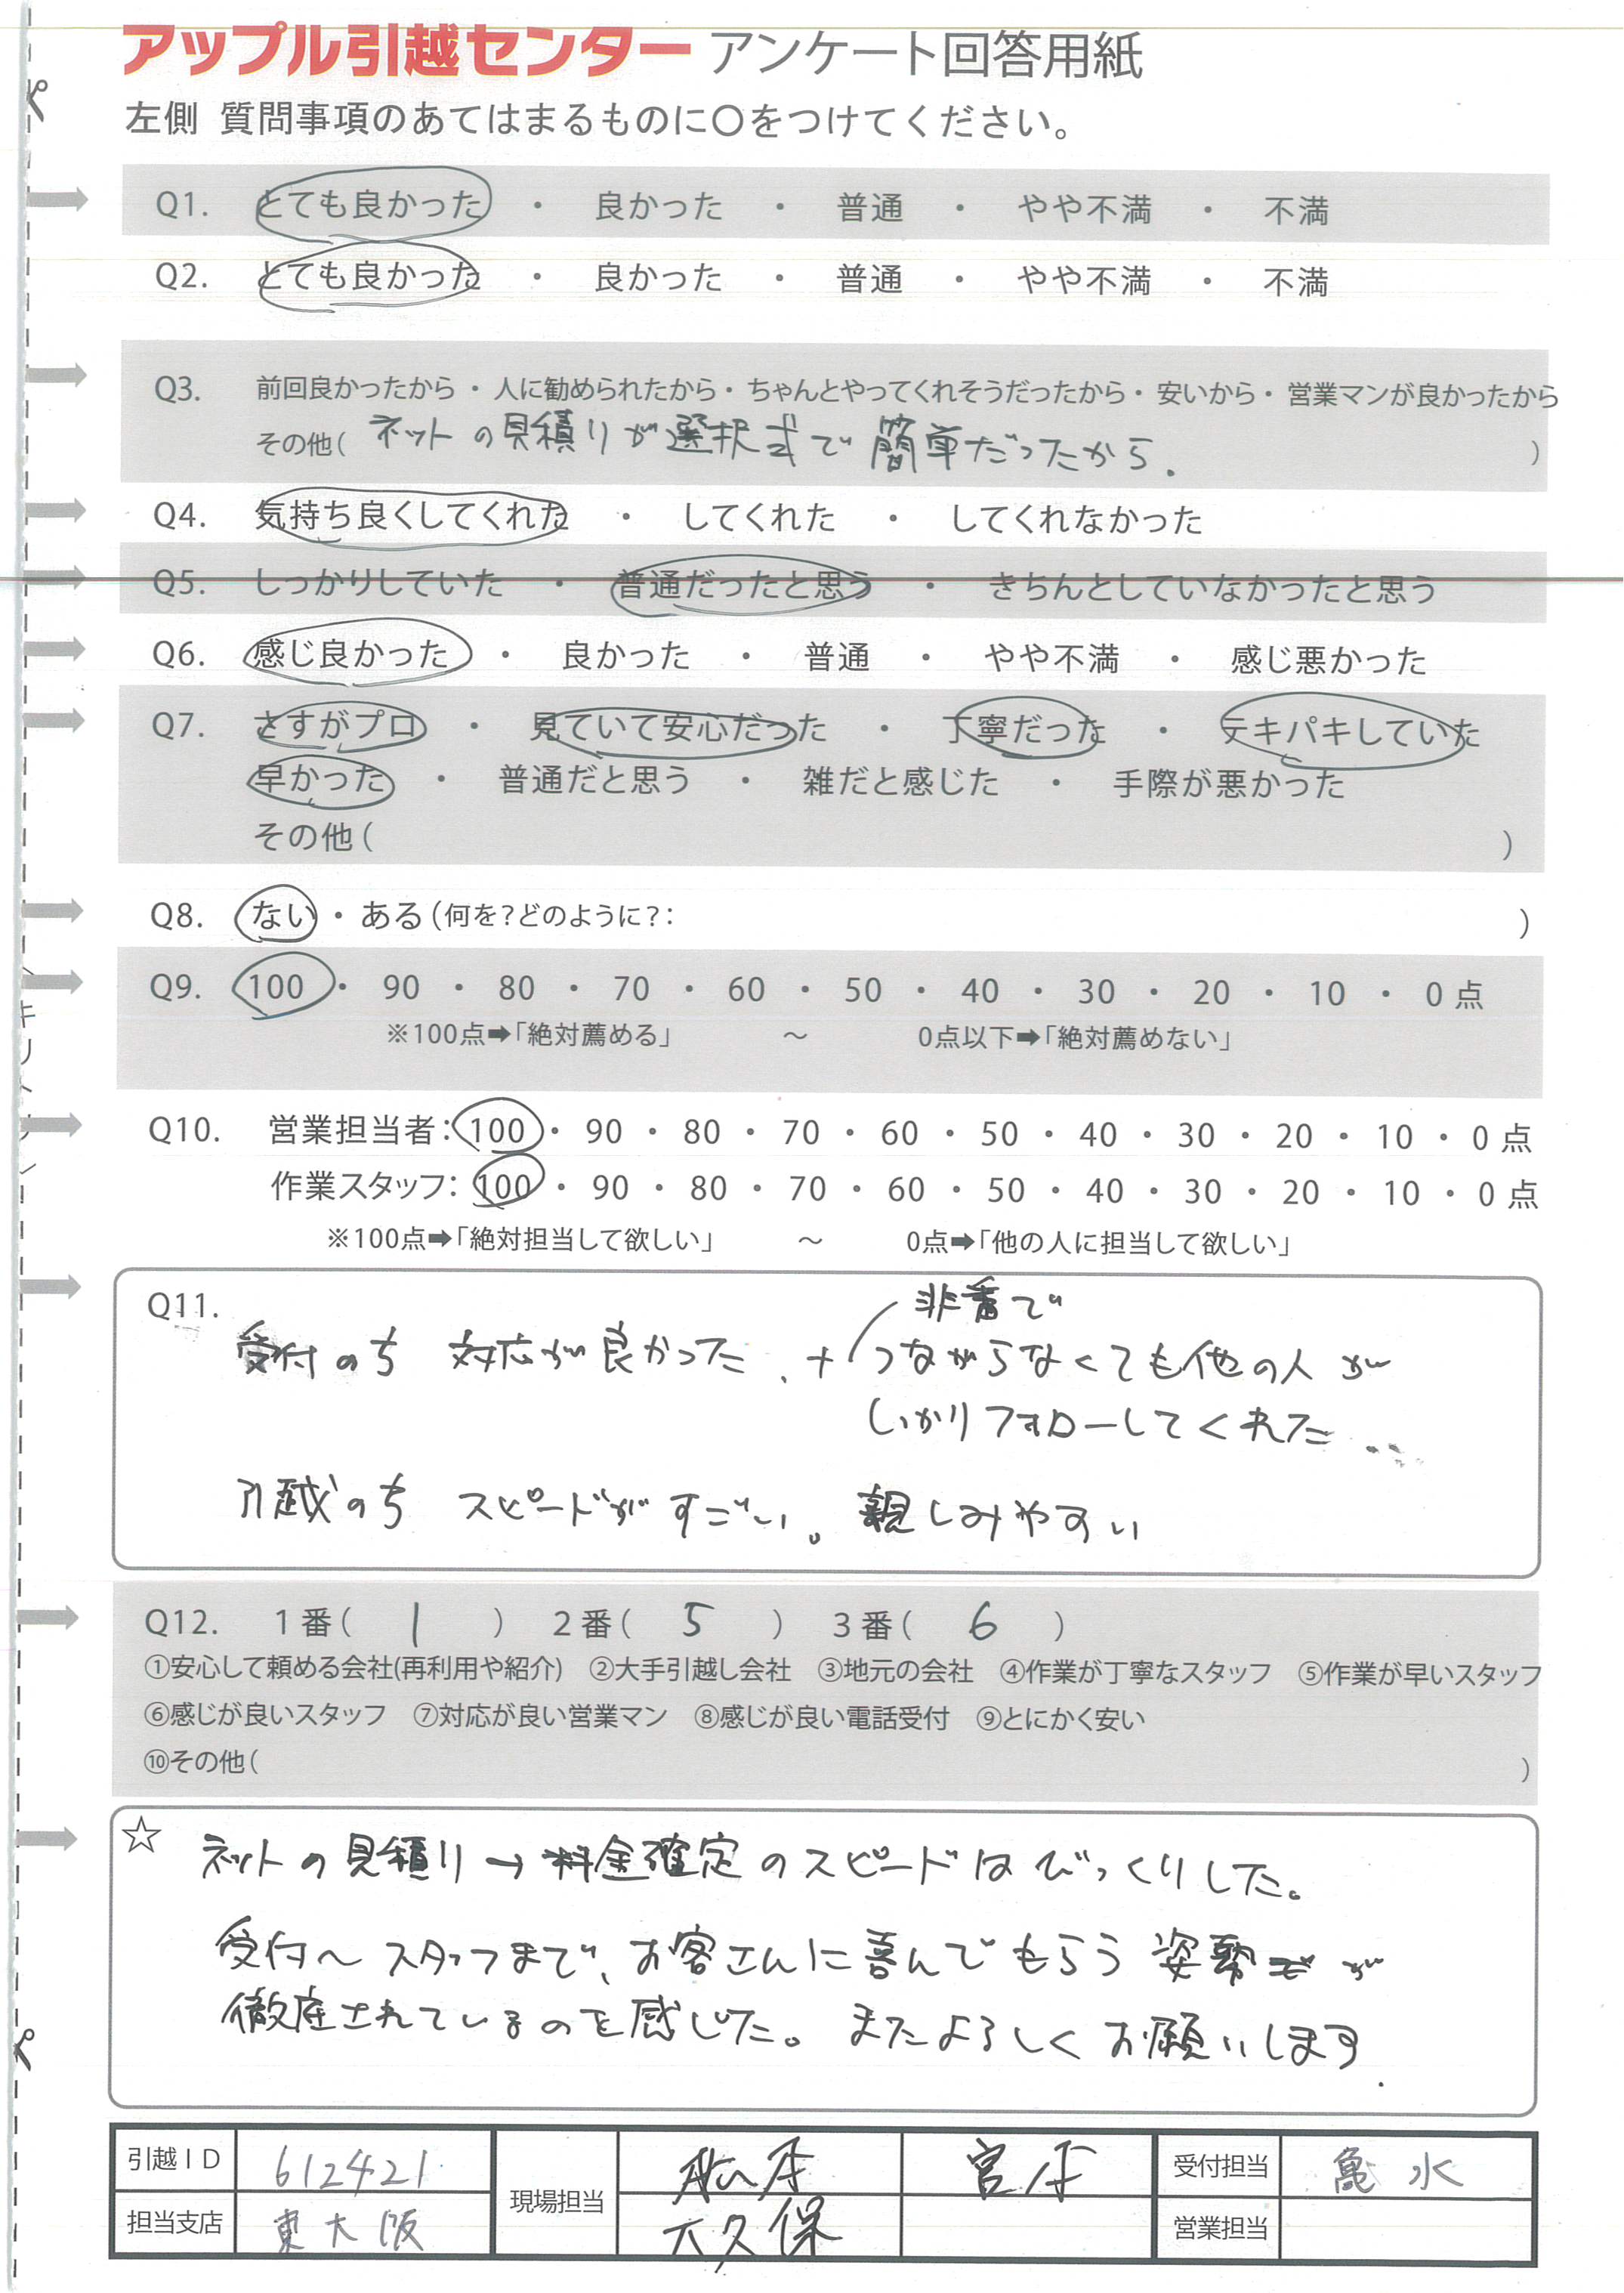 アップル引越センター アンケート回答用紙
左側 質問事項のあてはまるものに〇をつけてください。
Q1. とても良かった ・ 良かった ・ 普通 ・ やや不満 ・ 不満
Q2. とても良かった ・ 良かった ・ 普通 ・ やや不満 ・ 不満
Q3. 前回良かったから ・ 人に勧められたから ・ ちゃんとやってくれそうだったから ・ 安いから ・ 営業マンが良かったから
その他( ネットの見積りが選択式で簡単だったから. )
Q4. 気持ち良くしてくれた ・ してくれた ・ してくれなかった
Q5. しっかりしていた ・ 普通だったと思う ・ きちんとしていなかったと思う
Q6. 感じ良かった ・ 良かった ・ 普通 ・ やや不満 ・ 感じ悪かった
Q7. さすがプロ ・ 見ていて安心だった ・ 丁寧だった ・ テキパキしていた
早かった ・ 普通だと思う ・ 雑だと感じた ・ 手際が悪かった
その他( )
Q8. ない ・ ある (何を?どのように?: )
Q9. 100 ・ 90 ・ 80 ・ 70 ・ 60 ・ 50 ・ 40 ・ 30 ・ 20 ・ 10 ・ 0 点
※100点➡「絶対薦める」 ～ 0点以下➡「絶対薦めない」
Q10. 営業担当者: 100 ・ 90 ・ 80 ・ 70 ・ 60 ・ 50 ・ 40 ・ 30 ・ 20 ・ 10 ・ 0 点
作業スタッフ: 100 ・ 90 ・ 80 ・ 70 ・ 60 ・ 50 ・ 40 ・ 30 ・ 20 ・ 10 ・ 0 点
※100点➡「絶対担当して欲しい」 ～ 0点➡「他の人に担当して欲しい」
Q11.
非番で
受付の方 対応が良かった. + つながらなくても他の人が
しっかりフォローしてくれた
引越の方 スピードがすごい。親しみやすい
Q12. 1番( 1 ) 2番( 5 ) 3番( 6 )
①安心して頼める会社(再利用や紹介) ②大手引越し会社 ③地元の会社 ④作業が丁寧なスタッフ ⑤作業が早いスタッフ
⑥感じが良いスタッフ ⑦対応が良い営業マン ⑧感じが良い電話受付 ⑨とにかく安い
⑩その他( )
☆ ネットの見積り→料金確定のスピードはびっくりした。
受付～スタッフまで、お客さんに喜んでもらう姿勢が
徹底されているのを感じた。またよろしくお願いします.
引越ID 612421 現場担当 宮庁 受付担当 亀水
担当支店 東大阪 大久保 営業担当